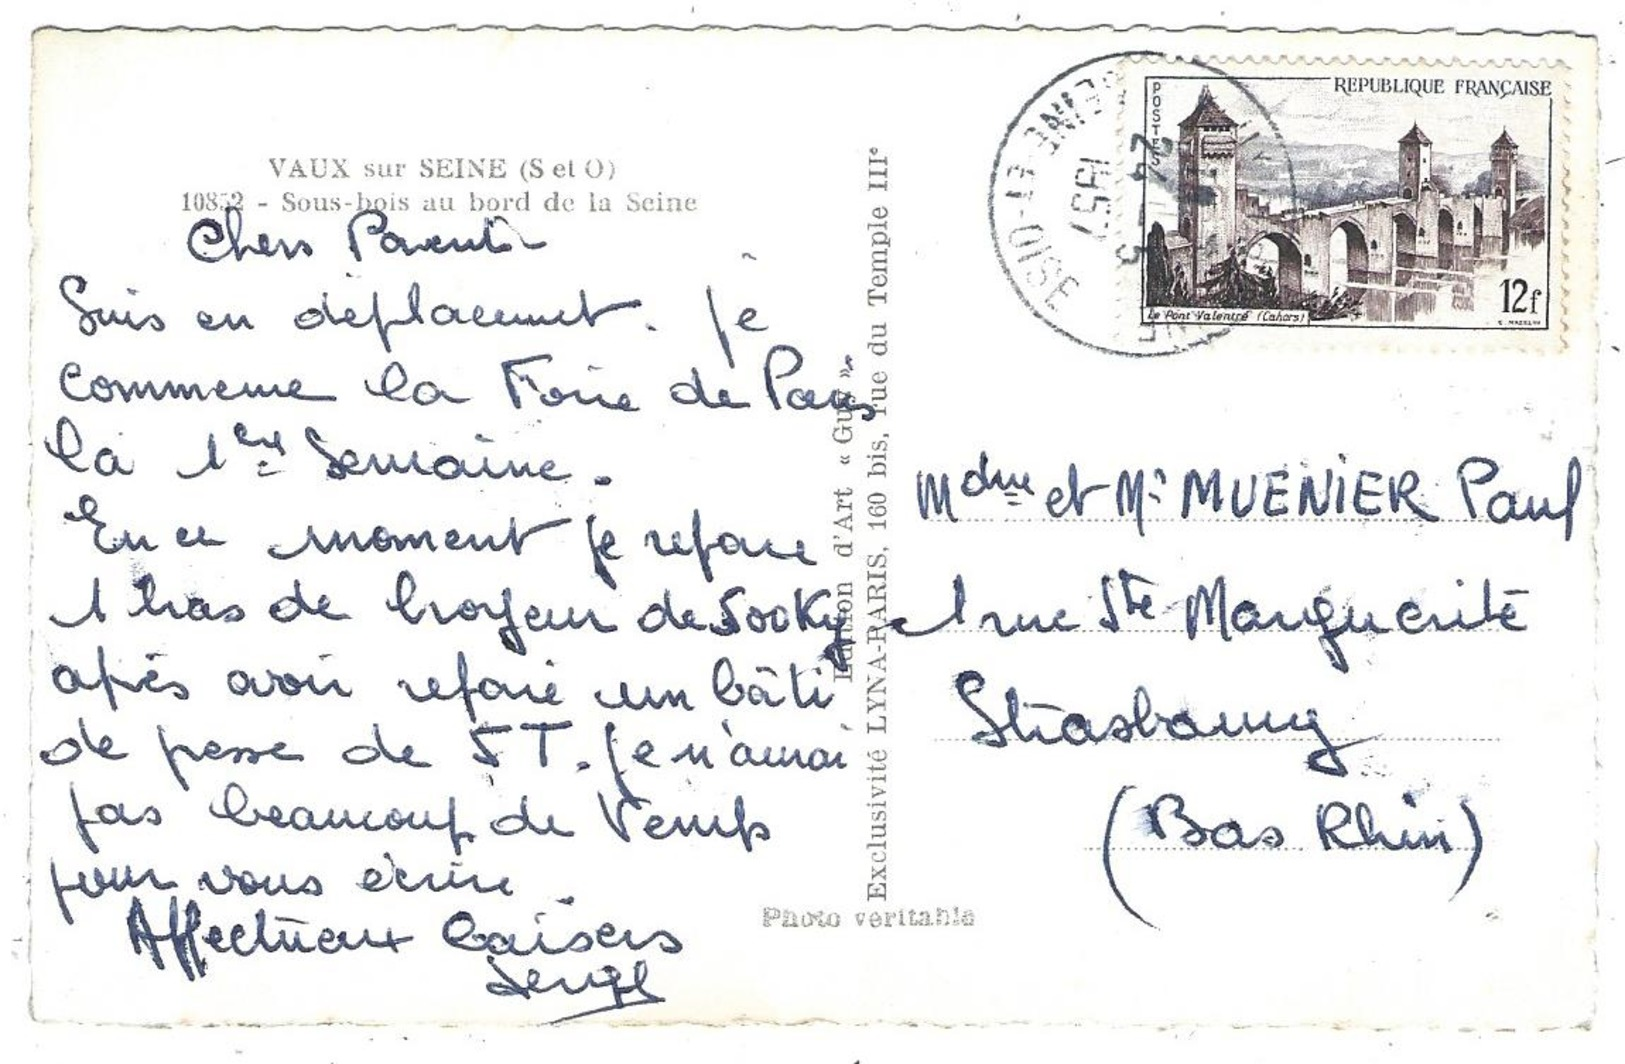 VAUX sur SEINE (S et O)
10852 - Sous-bois au bord de la Seine
Chers Parents
Suis en déplacement. je
commence la Foire de Paris
la 1ère Semaine.
En ce moment je refais
1 bras de broyeur de 500 Kg
après avoir refait un bâti
de presse de 5T. Je n'aurai
pas beaucoup de Temps
pour vous écrire.
Affectueux baisers
Serge
Edition d'Art « Guy »
Exclusivité LYNA-PARIS, 160 bis, rue du Temple IIIe
Photo véritable
SEINE-ET-OISE
24
3
1957
REPUBLIQUE FRANÇAISE
POSTES
Le Pont Valentré (Cahors)
12f
C. MAZELIN
Mdme et Mr MUENIER Paul
1 rue Ste Marguerite
Strasbourg
(Bas Rhin)